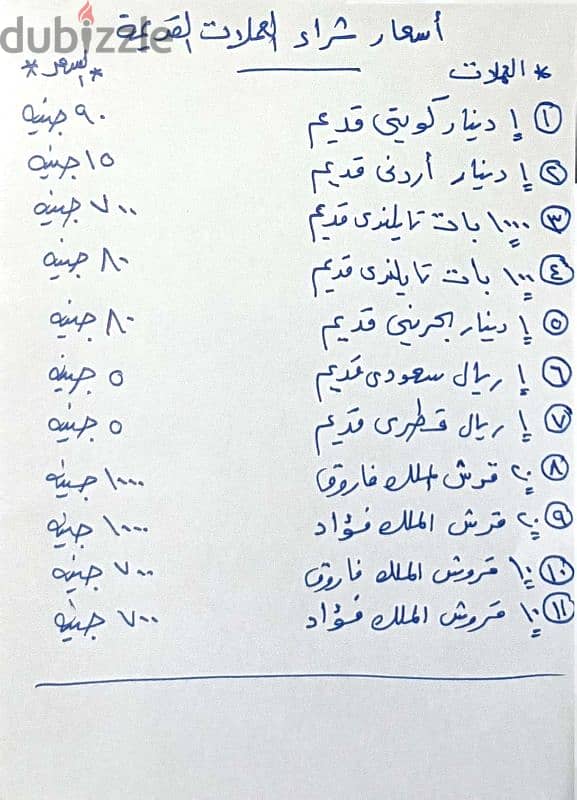 أسعار شراء العملات القديمة
dubizzle
* العملات *السعر*
١ ١ دينار كويتى قديم ٩٠ جنيه
٢ ١ دينار أردنى قديم ١٥ جنيه
٣ ١٠٠٠ بات تايلندى قديم ٧٠٠ جنيه
٤ ١٠٠ بات تايلندى قديم ٨٠ جنيه
٥ ١ دينار البحرينى قديم ٨٠ جنيه
٦ ١ ريال سعودى قديم ٥ جنيه
٧ ١ ريال قطرى قديم ٥ جنيه
٨ ٢٠ قرش الملك فاروق ١٠٠٠ جنيه
٩ ٢٠ قرش الملك فؤاد ١٠٠٠ جنيه
١٠ ١٠ قروش الملك فاروق ٧٠٠ جنيه
١١ ١٠ قروش الملك فؤاد ٧٠٠ جنيه